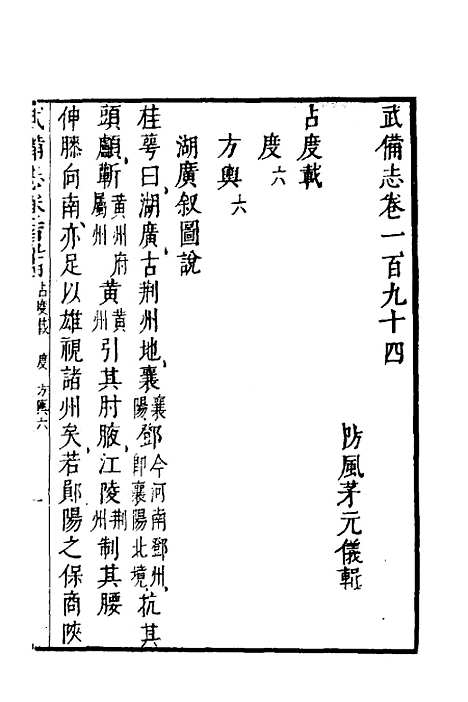 武備志卷一百九十四
防風茅元儀輯
占度載
度六
方輿六
湖廣叙圖說
桂萼曰湖廣古荆州地襄襄陽鄧今河南鄧州即襄陽北境抗其
頭顱蘄黄州府屬州黄黄州引其肘腋江陵荆州制其腰
伸膝向南亦足以雄視諸州矣若鄖陽之保商陝
武備志卷 占度載 度 方輿六 一